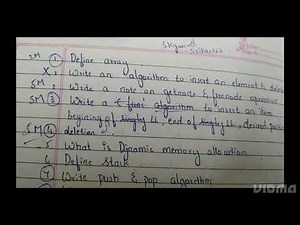 Skyward
5M 1. Define array.
X 2. Write an algorithm to insert an element & delete
5M, Write a note on getnode & freenode operation
5M 3 Write a C func algorithm to insert an item
begining of singly LL, end of singly LL, desired position
5M 4 deletion.
5. What is Dynamic memory allocation
6. Define stack
7. Write push & pop algorithm
VIDMA